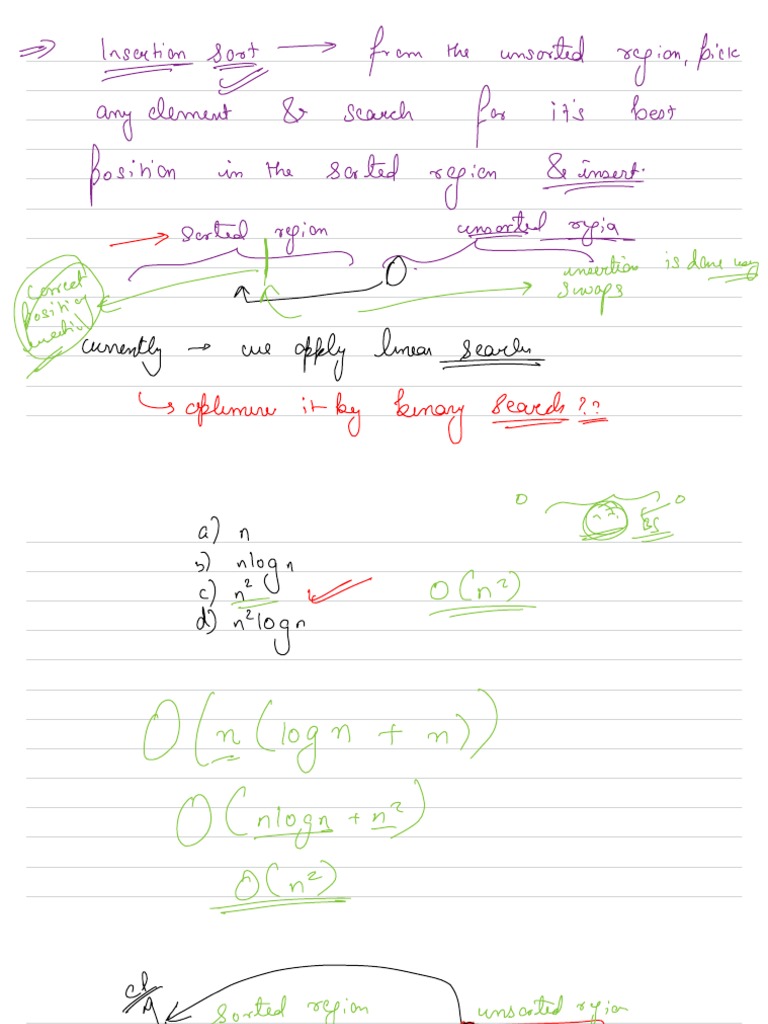 ⇒ Insertion Sort → from the unsorted region, pick
any element & search for it's best
position in the sorted region & insert.
→ sorted region unsorted regio
correct
position
insertion is done using
swaps
currently → we apply linear search
↳ optimize it by binary search??
a) n
b) nlogn
c) n²
d) n²logn
BS
O(n²)
O(n(logn + n))
O(nlogn + n²)
O(n²)
sorted region unsorted region